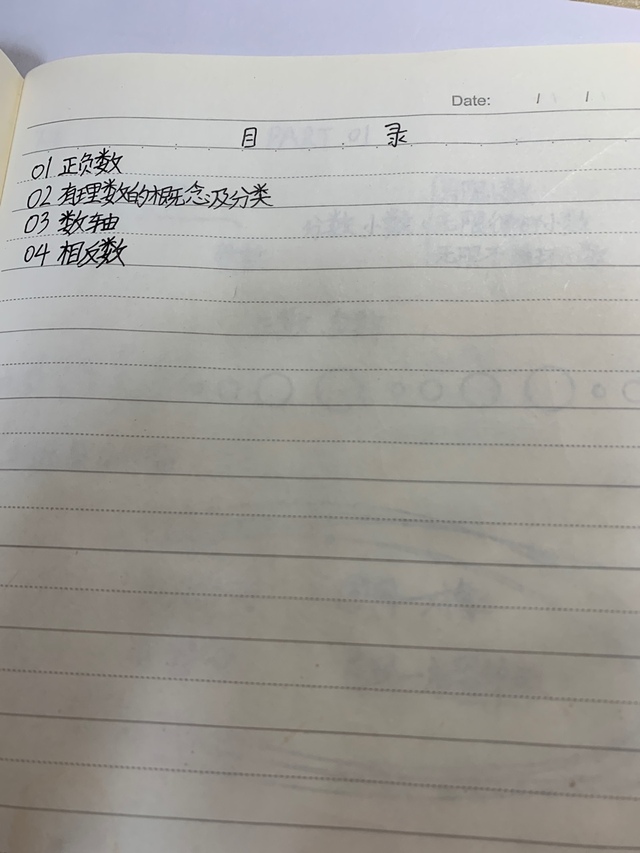 Date: / /
目 录
01 正负数
02 有理数的概念及分类
03 数轴
04 相反数